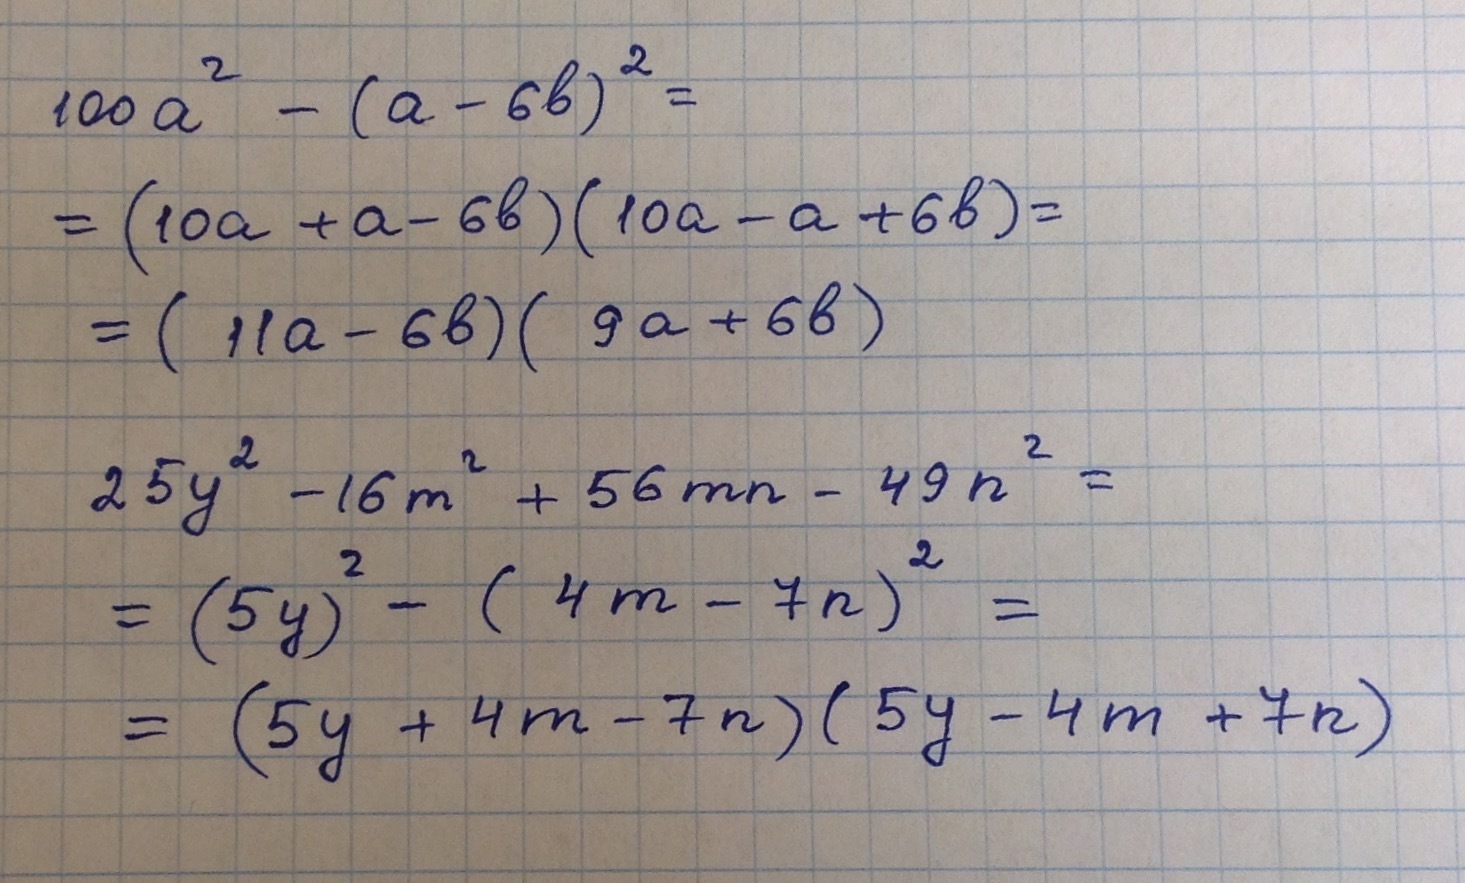 100a² - (a - 6b)² =
= (10a + a - 6b)(10a - a + 6b) =
= (11a - 6b)(9a + 6b)
25y² - 16m² + 56mn - 49n² =
= (5y)² - (4m - 7n)² =
= (5y + 4m - 7n)(5y - 4m + 7n)